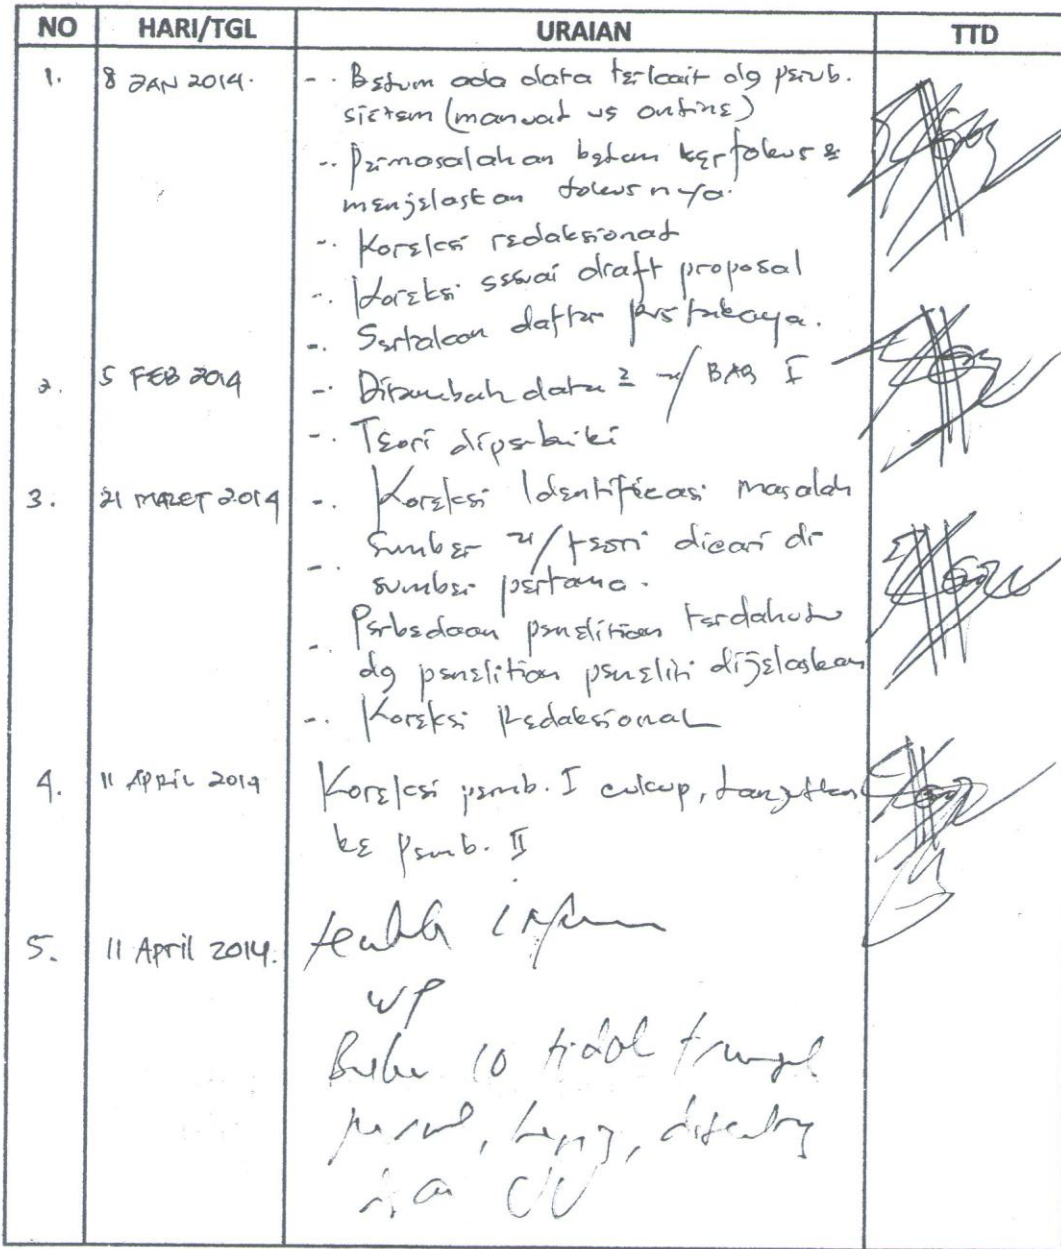 NO HARI/TGL URAIAN TTD
1. 8 JAN 2014. -. Belum ada data terkait dg perub.
sistem (manual vs online)
-. Permasalahan belum terfokus &
menjelaskan fokusnya.
-. Koreksi redaksional
-. Koreksi sesuai draft proposal
-. Sertakan daftar pustakanya.
2. 5 FEB 2014 -. Ditambah data2 u/ BAB I
-. Teori diperbaiki
3. 21 MARET 2014 -. Koreksi Identifikasi masalah
-. Sumber u/ teori dicari di
sumber pertama.
-. Perbedaan penelitian terdahulu
dg penelitian peneliti dijelaskan
-. Koreksi Redaksional
4. 11 APRIL 2014 Koreksi pemb. I cukup, lanjutkan
ke Pemb. II
5. 11 April 2014.
WP
10 tidak